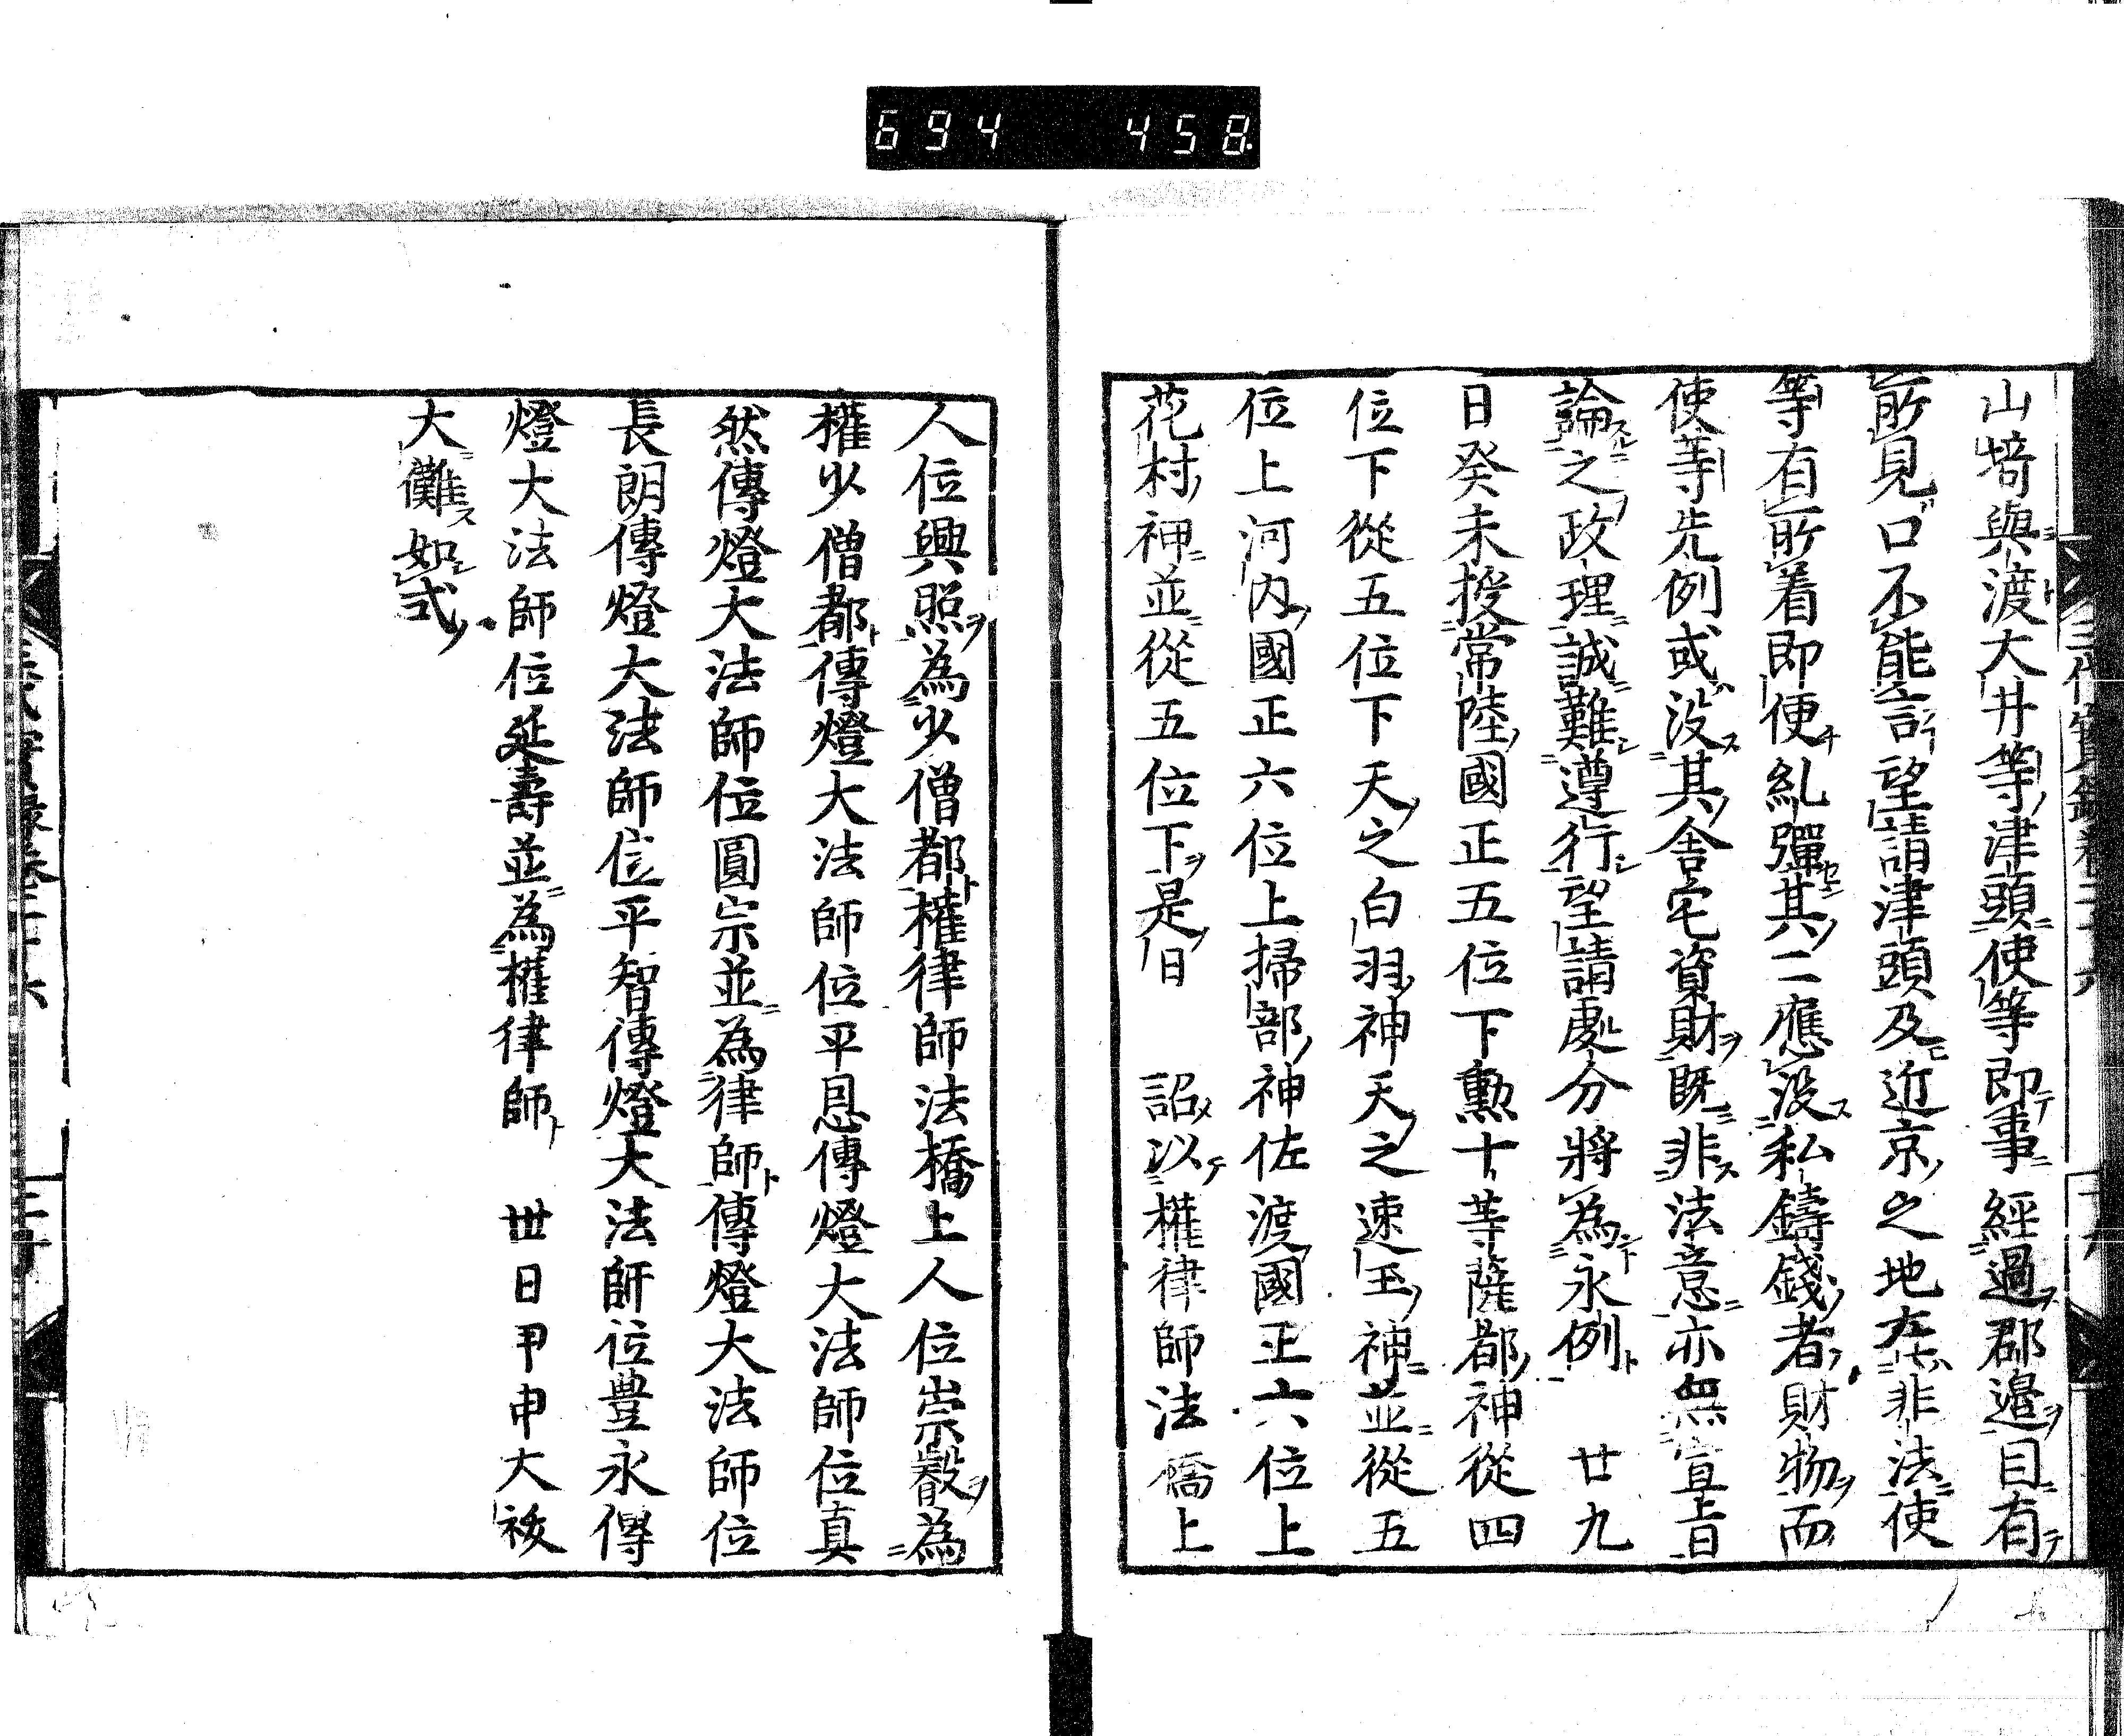 694 458
山埼與渡大井等津頭使等即事經過郡邊目有
所見口不能言望請津頭及近京之地左非法使
等有所着即便糺彈其二應没私鑄錢者財物而
使等先例或没其舎宅資財既非法意亦無宣旨
論之政理誠難遵行望請處分將為永例 廿九
日癸未授常陸國正五位下勲十等薩都神從四
位下從五位下天之白羽神天之速玉神並從五
位上河内國正六位上掃部神佐渡國正六位上
花村神並從五位下是日 詔以權律師法橋上
人位興照為少僧都權律師法橋上人位崇叡為
權少僧都傳燈大法師位平恩傳燈大法師位真
然傳燈大法師位圓宗並為律師傳燈大法師位
長朗傳燈大法師位平智傳燈大法師位豊永傳
燈大法師位延壽並為權律師 丗日甲申大祓
大儺如式